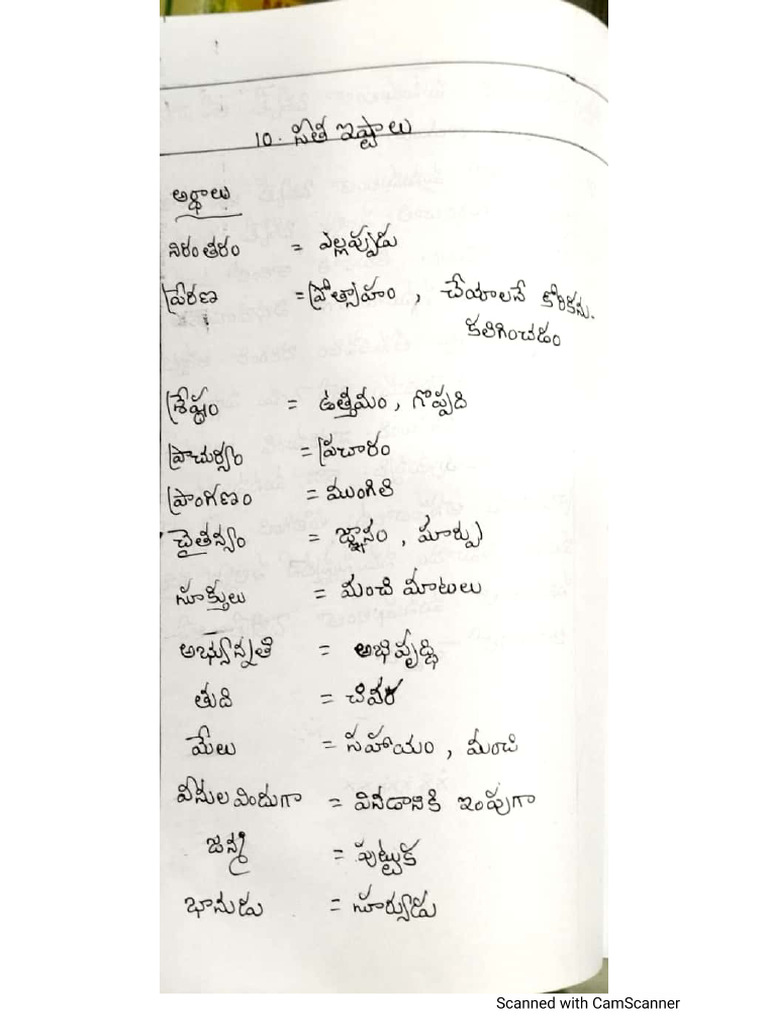 10. సీత ఇష్టాలు
అర్థాలు
నిరంతరం = ఎల్లప్పుడు
ప్రేరణ = ప్రోత్సాహం, చేయాలనే కోరికను
కలిగించడం
శ్రేష్ఠం = ఉత్తమం, గొప్పది
ప్రాచుర్యం = ప్రచారం
ప్రాంగణం = ముంగిలి
చైతన్యం = జ్ఞానం, మార్పు
సూక్తులు = మంచి మాటలు
అభ్యున్నతి = అభివృద్ధి
తుది = చివర
మేలు = సహాయం, మంచి
వీనులవిందుగా = వినడానికి ఇంపుగా
జన్మ = పుట్టుక
భానుడు = సూర్యుడు
Scanned with CamScanner